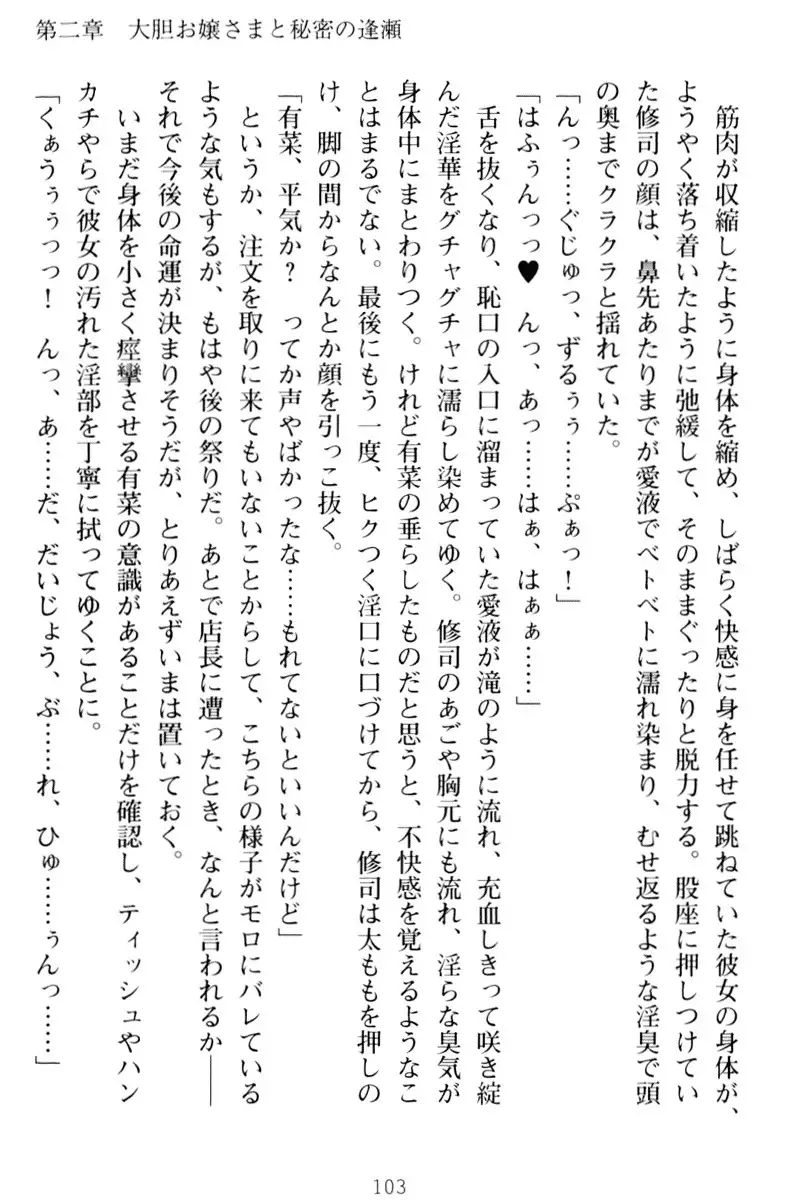 第二章　大胆お嬢さまと秘密の逢瀬
筋肉が収縮したように身体を縮め、しばらく快感に身を任せて跳ねていた彼女の身体が、
ようやく落ち着いたように弛緩して、そのままぐったりと脱力する。股座に押しつけてい
た修司の顔は、鼻先あたりまでが愛液でベトベトに濡れ染まり、むせ返るような淫臭で頭
の奥までクラクラと揺れていた。
「んっ……ぐじゅっ、ずるぅぅ……ぷぁっ！」
「はふぅんっっ♥　んっ、あっ……はぁ、はぁぁ……」
舌を抜くなり、恥口の入口に溜まっていた愛液が滝のように流れ、充血しきって咲き綻
んだ淫華をグチャグチャに濡らし染めてゆく。修司のあごや胸元にも流れ、淫らな臭気が
身体中にまとわりつく。けれど有菜の垂らしたものだと思うと、不快感を覚えるようなこ
とはまるでない。最後にもう一度、ヒクつく淫口に口づけてから、修司は太ももを押しの
け、脚の間からなんとか顔を引っこ抜く。
「有菜、平気か？　ってか声やばかったな……もれてないといいんだけど」
というか、注文を取りに来てもいないことからして、こちらの様子がモロにバレている
ような気もするが、もはや後の祭りだ。あとで店長に遭ったとき、なんと言われるか――
それで今後の命運が決まりそうだが、とりあえずいまは置いておく。
いまだ身体を小さく痙攣させる有菜の意識があることだけを確認し、ティッシュやハン
カチやらで彼女の汚れた淫部を丁寧に拭ってゆくことに。
「くぁうぅぅっっ！　んっ、あ……だ、だいじょう、ぶ……れ、ひゅ……ぅんっ……」
103